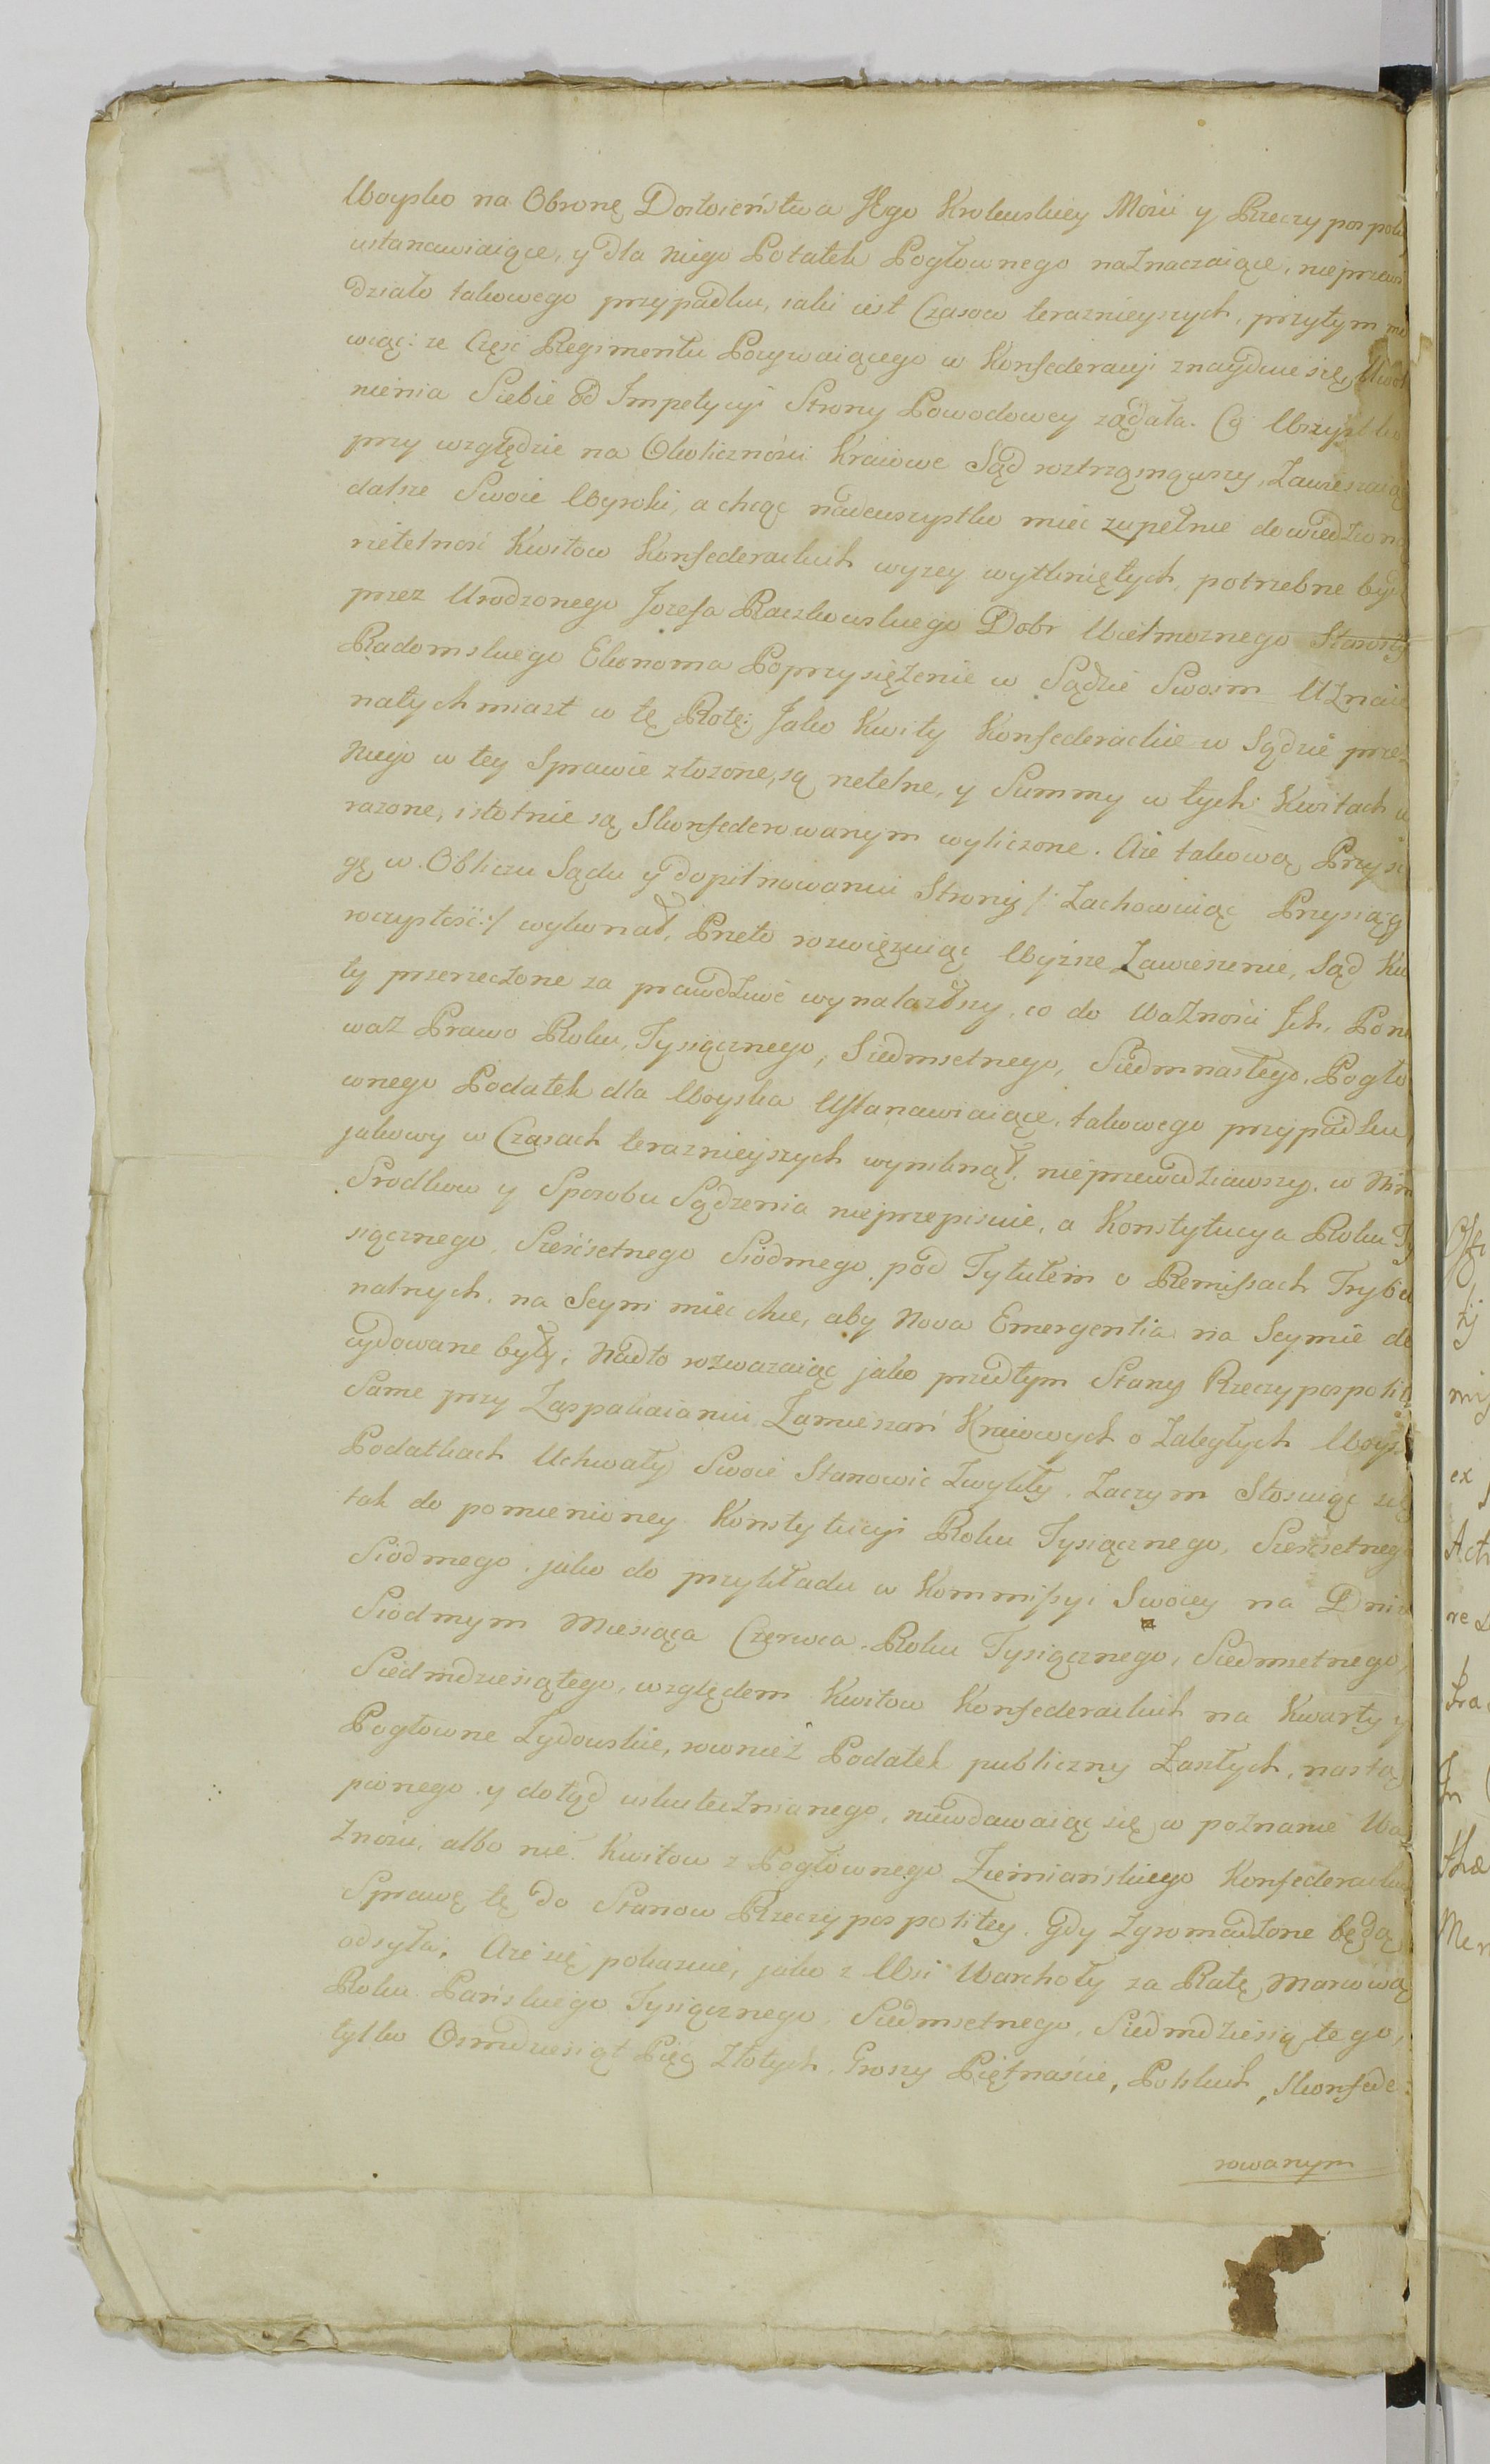 Woysko na Obronę Dostoieństwa JEgo Krolewskiey Mości y Rzeczypospoli
ustanawiaiące, y dla niego Potatek Pogłownego naznaczaiące, nieprzewi
działo takowego przypadku, iaki iest Czasow terazniejszych, przytym mo
wiąc: ze Częsć Regimentu Pozywaiącego w Konfederacyi znayduie się, Uwol
nienia Siebie od Impetycyi Strony Powodowey ządała. Co Wszystko
przy względzie na Okolicznosci Kraiowe Sąd roztrząsnąwszy, Zawieszaią
dalsze Swoie Wyroki, a chcąc nadewszystko miec zupełnie dowiedziono
rietelnosć Kwitow Konfederackich wyzey wytkniętych, potrzebne być
przez Urodzonego Jozefa Raczkowskiego Dobr Wielmoznego Starosty
Radomskiego Ekonoma Poprzysięzenie w Sądzie Swoim Uznaie
natychmiast w tę Rotę: Jako Kwity Konfederackie w Sądzie przez
Niego w tey Sprawie złozone, są rietelne, y Summy w tych Kwitach w
razone, istotnie są Skonfederowanym wyliczone. Aże takową Przysi
gę w Obliczu Sądu y dopilnowaniu Strony /: Zachowuiąc Przysiąg
roczystość :/ wykonał, Przeto rozwięzuiąc Wyższe Zawieszenie, Sąd Kwi
ty przerzeczone za prawdziwe wynalazłszy, co do Ważności Jch, Ponie
waż Prawo Roku, Tysiącznego, Siedmsetnego, Siedmnastego, Pogło
wnego Podatek dla Woyska Ustanawiaiące, takowego przypadku
jakowy w Czasach terazniejszych wymknął, nieprzewidziawszy, w Nim
Srodkow y Sposobu Sądzenia nieprzepisuie, a Konstytucya Roku Ty
siącznego, Sześćsetnego Siodmego, pod Tytułem o Remissach Trybu
nalnych, na Seym mieć chce, aby Nova Emergentia na Seymie de
cydowane były, Nadto rozwazaiąc jako przedtym Stany Rzeczypospolit
Same przy Zaspakaianiu Zamieszań Kraiowych o Zaległych Woysk
Podatkach Uchwały Swoie Stanowić Zwykły, Zaczym Stosuiąc się
tak do pomienioney Konstytucyi Roku Tysiącznego, Sześćsetnego
Siódmego, jako do przykładu w Kommissyi Swoiey na Dniu
Siodmym Miesiąca Czerwca, Roku Tysiącznego, Siedmsetnego,
Siedmdziesiątego, względem Kwitow Konfederackich na Kwarty y
Pogłowne Zydowskie, rownież Podatek publiczny Zaszłych, nastą
pionego y dotąd uskutecznianego, niewdawaiąc się w poznanie Wa
żności, albo nie Kwitow z Pogłownego Ziemiańskiego Konfederackich
Sprawę tę do Stanow Rzeczypospolitey, Gdy zgromadzone będą
odsyła, Aże się pokazuie, jako z Wsi Warchoły za Ratę Marcową
Roku Pańskiego Tysiącznego, Siedmsetnego, Siedmdziesiątego,
tylko Osmdziesiąt Pięć Złotych, Groszy Piętnaście, Polskich, Skonfede:
rowanym